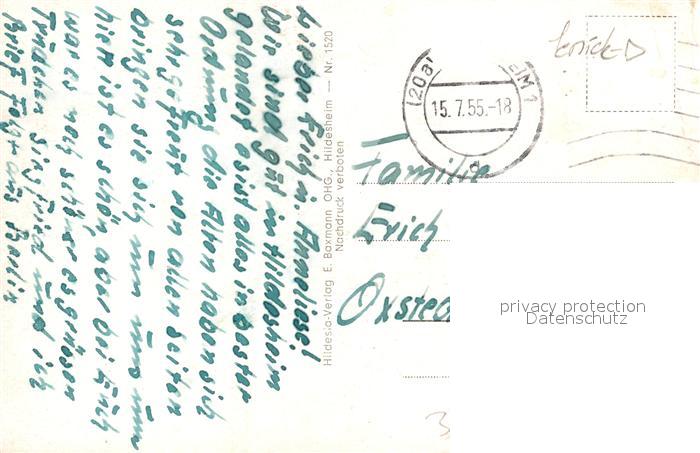 Lieber Erich u. Anneliese!
Wir sind gut in Hildesheim
gelandet es ist alles in bester
Ordnung die Alten haben sich
sehr gefreut von allen Seiten
bringen sie sich um uns um
hier ist es schön, aber bei Euch
war es noch schöner es grüssen
und ich
Brief folgt aus Berlin
Hildesia-Verlag E. Baxmann OHG., Hildesheim — Nr. 1520
Nachdruck verboten
(20a)
EIM 1
15.7.55.-18
a
knick-D
Familie
Erich
Oxsted
privacy protection
Datenschutz
3